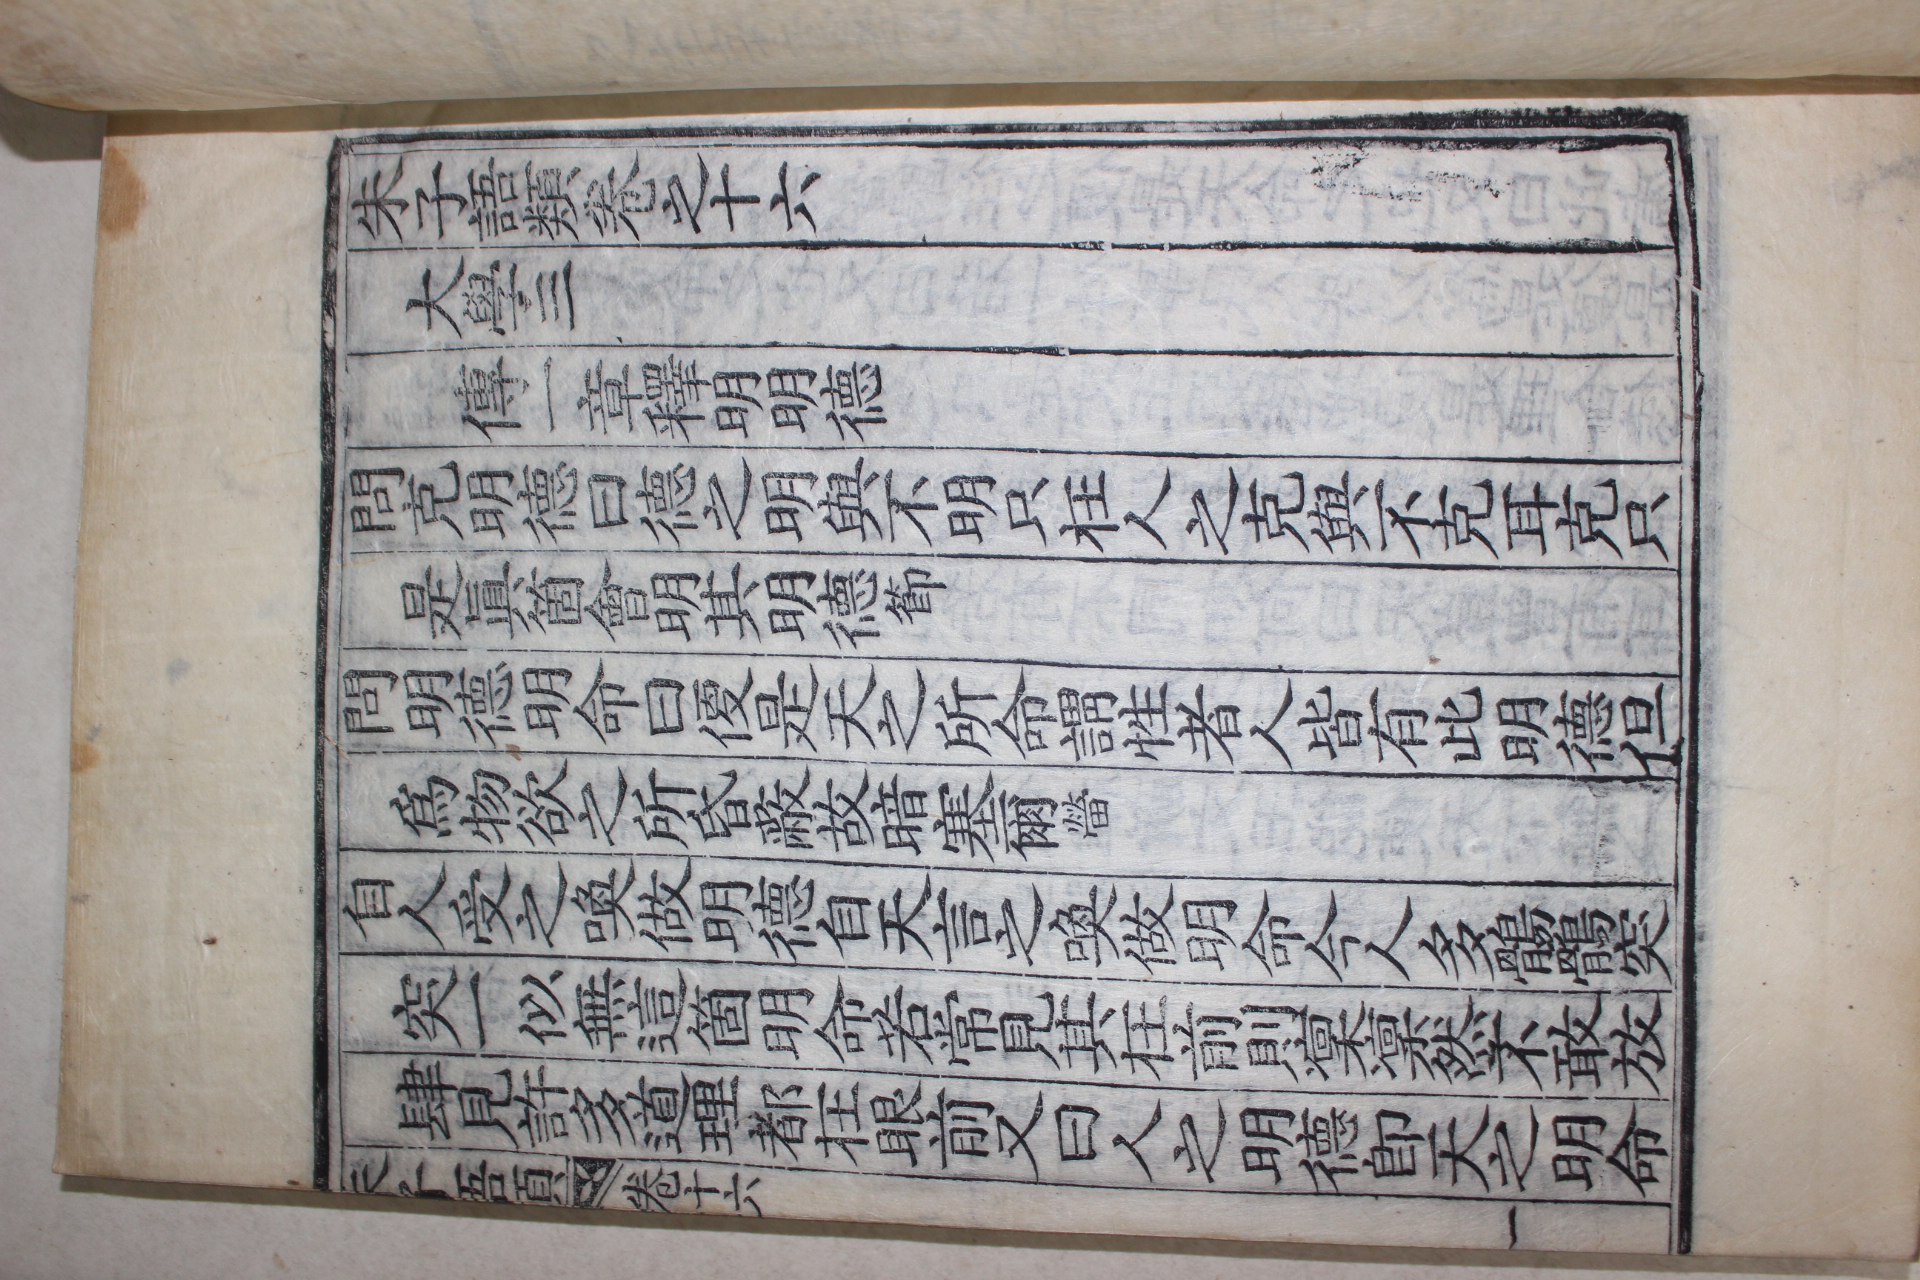 朱子語類卷之十六
大學三
傳一章釋明明德
問克明德曰德之明與不明只在人之克與不克耳克只
是眞箇會明其明德節
問明德明命曰便是天之所命謂性者人皆有此明德但
爲物欲之所昏蔽故暗塞爾㽦
自人受之喚做明德自天言之喚做明命今人多鶻鶻突
突一似無這箇明命若常見其在前則凜凜然不敢放
肆見許多道理都在眼前又曰人之明德卽天之明命
朱子語類 卷十六 一